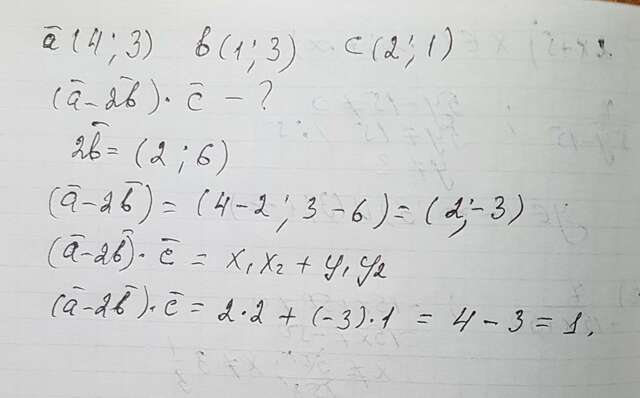 ā(4;3) b(1;3) c(2;1)
(ā-2b̄)·c̄ - ?
2b̄ = (2;6)
(ā-2b̄) = (4-2; 3-6) = (2;-3)
(ā-2b̄)·c̄ = x₁x₂ + y₁y₂
(ā-2b̄)·c̄ = 2·2 + (-3)·1 = 4-3 = 1.